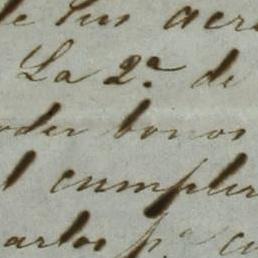 de sus acre
La 2.ª de
oder bonos
l cumplir
arlos p.ª cu